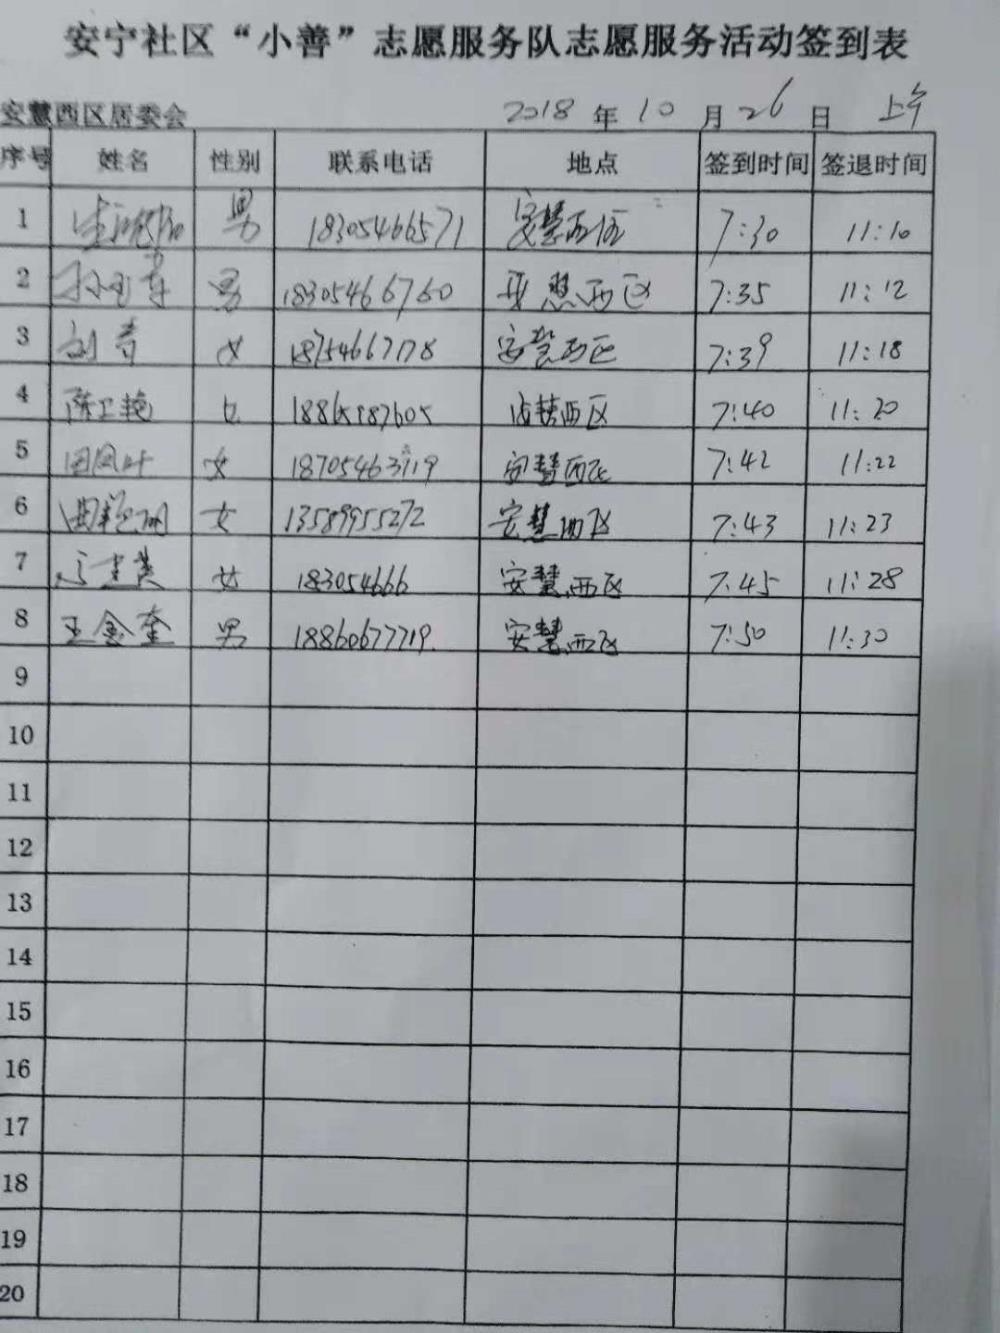 安宁社区“小善”志愿服务队志愿服务活动签到表
安慧西区居委会 2018 年 10 月 26 日 上午
序号 姓名 性别 联系电话 地点 签到时间 签退时间
1 男 18305466571 安慧西区 7:30 11:10
2 男 18305466760 安慧西区 7:35 11:12
3 刘 女 18754667178 安慧西区 7:39 11:18
4 陈卫艳 女 18865887605 安慧西区 7:40 11:20
5 田凤叶 女 18705463919 安慧西区 7:42 11:22
6 曲 女 13589955272 安慧西区 7:43 11:23
7 女 183054666 安慧西区 7:45 11:28
8 王金奎 男 18860677719. 安慧西区 7:50 11:30
9
10
11
12
13
14
15
16
17
18
19
20